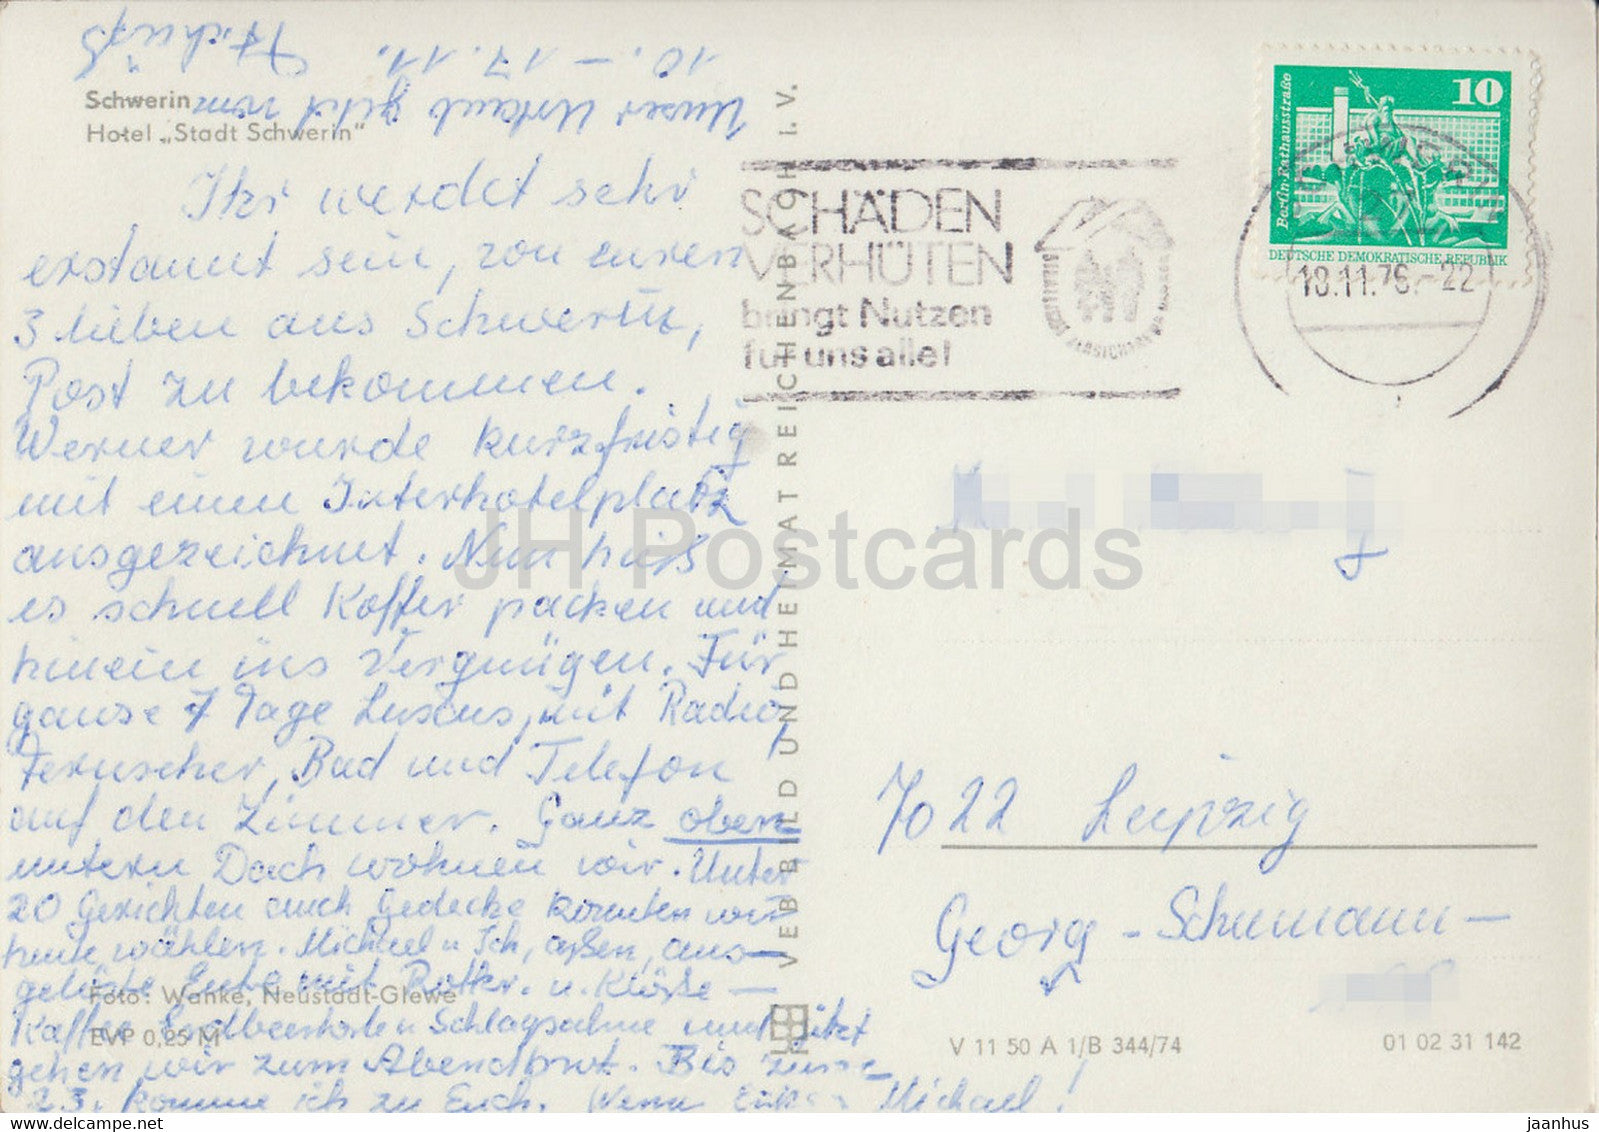 Schwerin
Hotel „Stadt Schwerin"
Unser Urlaub geht vom
10. – 17. 11.
Ihr werdet sehr
erstaunt sein, von euren
3 lieben aus Schwerin,
Post zu bekommen.
Werner wurde kurzfristig
mit einen Interhotelplatz
ausgezeichnet. Nun hieß
es schnell Koffer packen und
hinein ins Vergnügen. Für
ganze 7 Tage Luxus, mit Radio,
Fernseher, Bad und Telefon
auf den Zimmer. Ganz oben
untern Dach wohnen wir. Unter
20 Gerichten auch Gedecke konnten wir
heute wählen. Michael u Ich, aßen, aus-
gelöste Ente mit Rotkr. u. Klöße –
Kaffee Erdbeertorten Schlagsahne und jetzt
gehen wir zum Abendbrot. Bis zum
23. komme ich zu Euch. Michael!
Foto: Wanke, Neustadt-Glewe
EVP 0,25 M
VEB BILD UND HEIMAT REICHENBACH I. V.
SCHÄDEN
VERHÜTEN
bringt Nutzen
für uns alle!
10
Berlin-Rathausstraße
DEUTSCHE DEMOKRATISCHE REPUBLIK
18.11.76.-22
7022 Leipzig
Georg-Schumann-
V 11 50 A 1/B 344/74
01 02 31 142
JH Postcards
www.delcampe.net
jaanhus